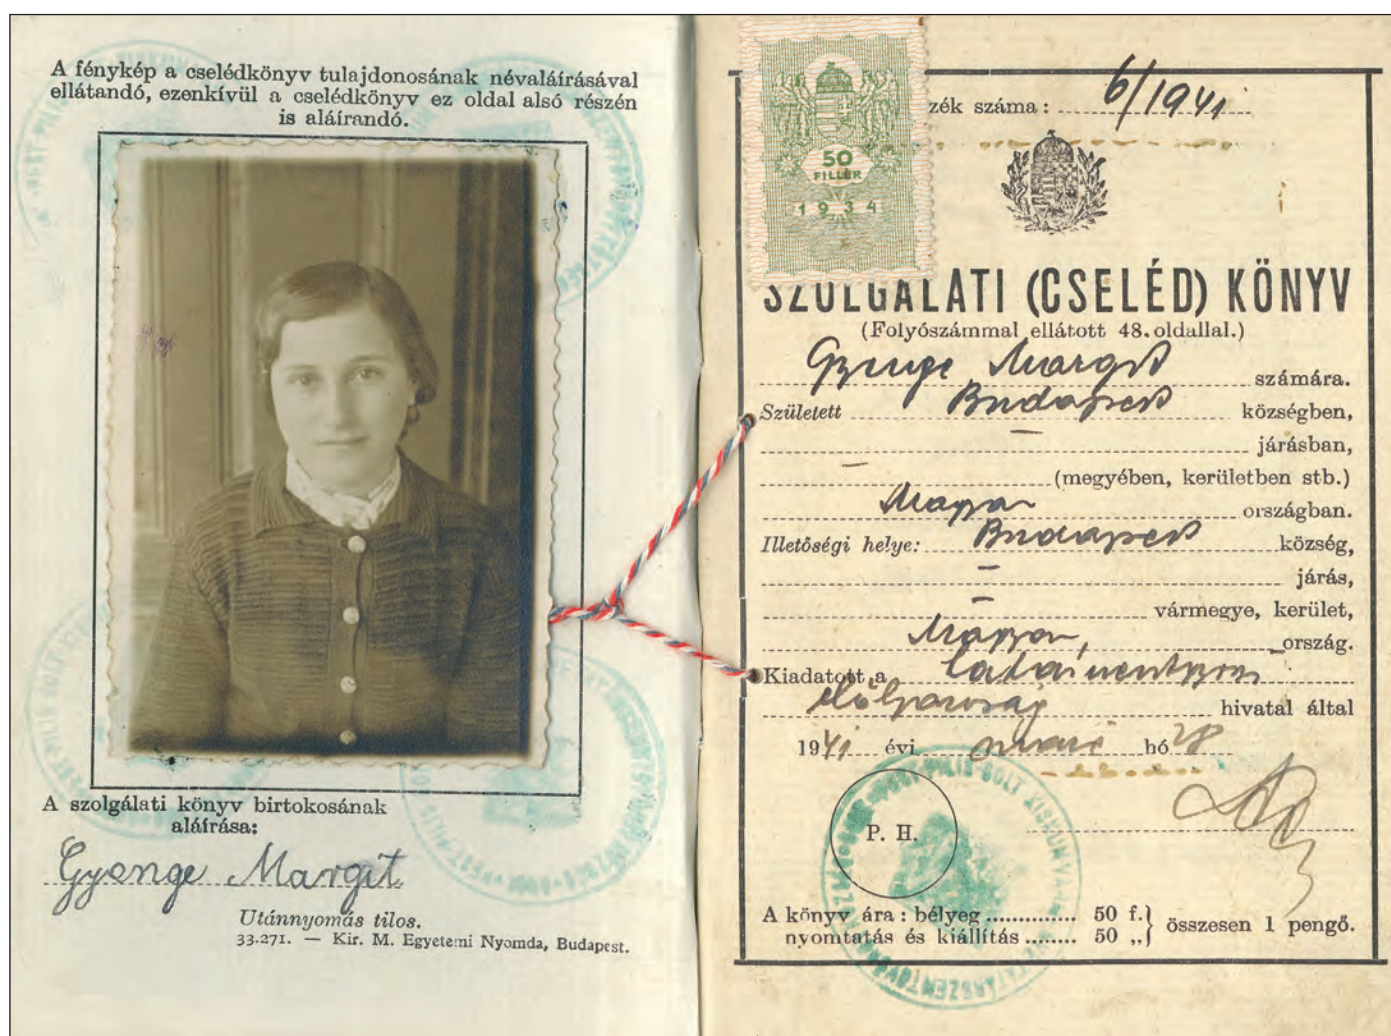 A fénykép a cselédkönyv tulajdonosának névaláírásával
ellátandó, ezenkívül a cselédkönyv ez oldal alsó részén
is aláírandó.
A szolgálati könyv birtokosának
aláírása:
Gyenge Margit
Utánnyomás tilos.
33.271. — Kir. M. Egyetemi Nyomda, Budapest.
50
FILLÉR
1934
zék száma: 6/1941
SZOLGÁLATI (CSELÉD) KÖNYV
(Folyószámmal ellátott 48. oldallal.)
Gyenge Margit számára.
Született Budapest községben,
— járásban,
— (megyében, kerületben stb.)
Magyar országban.
Illetőségi helye: Budapest község,
— járás,
— vármegye, kerület,
Magyar, ország.
Kiadatott a
elöljáróság hivatal által
1941 évi hó 28
P. H.
A könyv ára: bélyeg 50 f.} összesen 1 pengő.
nyomtatás és kiállítás 50 „}